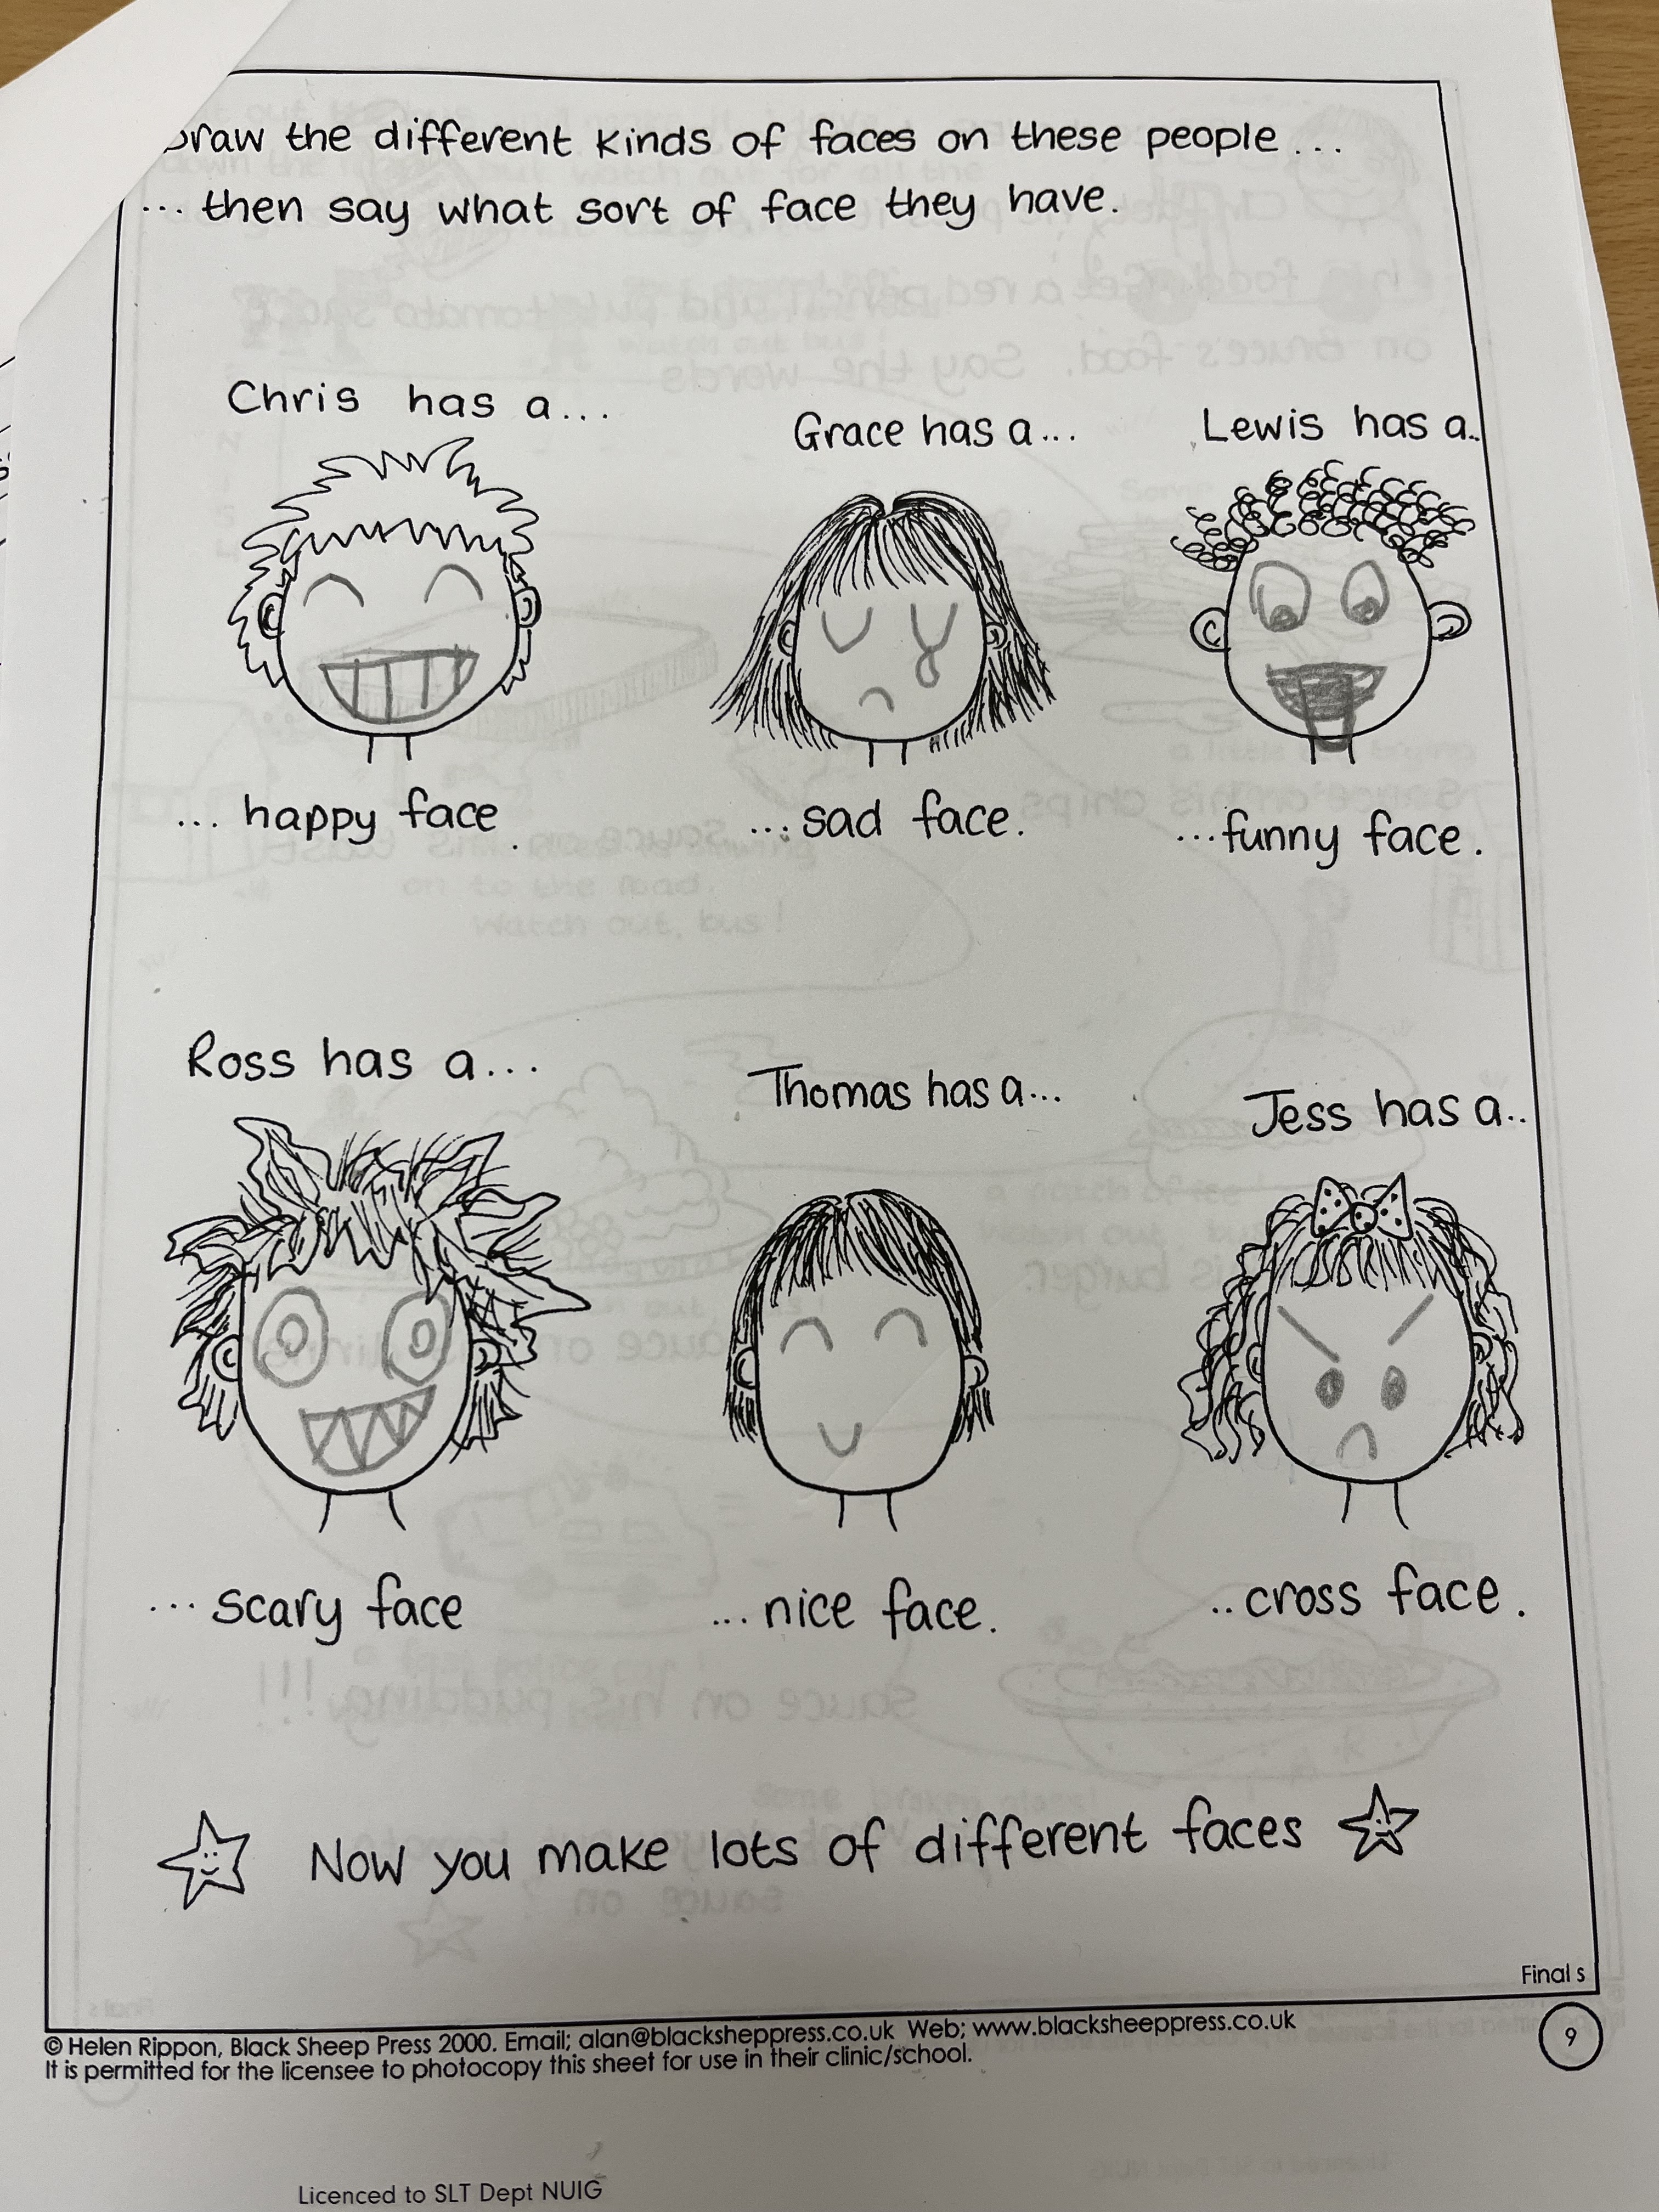 Draw the different kinds of faces on these people ...
... then say what sort of face they have.
Chris has a...
Grace has a...
Lewis has a..
... happy face.
... sad face.
...funny face.
Ross has a...
Thomas has a...
Jess has a..
... scary face
... nice face.
..cross face.
Now you make lots of different faces
Final s
© Helen Rippon, Black Sheep Press 2000. Email; alan@blacksheppress.co.uk Web; www.blacksheeppress.co.uk
It is permitted for the licensee to photocopy this sheet for use in their clinic/school.
9
Licenced to SLT Dept NUIG